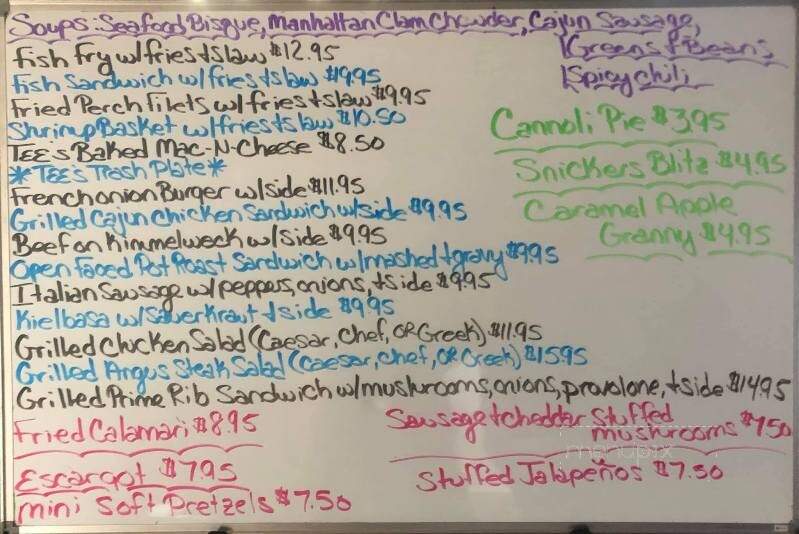 Soups: Seafood Bisque, Manhattan Clam Chowder, Cajun Sausage,
Greens & Beans,
Spicy chili
Fish Fry w/fries + slaw $12.95
Fish Sandwich w/fries + slaw $9.95
Fried Perch Filets w/fries + slaw $9.95
Shrimp Basket w/fries + slaw $10.50
TEE's Baked Mac-N-Cheese $8.50
*TEE's Trash Plate*
French onion Burger w/side $11.95
Grilled Cajun Chicken Sandwich w/side $9.95
Beef on Kimmelweck w/side $9.95
Open Faced Pot Roast Sandwich w/mashed + gravy $9.95
Italian Sausage w/peppers, onions, + side $9.95
Kielbasa w/Sauerkraut + side $9.95
Grilled Chicken Salad (Caesar, Chef, OR Greek) $11.95
Grilled Angus Steak Salad (Caesar, Chef, OR Greek) $15.95
Grilled Prime Rib Sandwich w/mushrooms, onions, provolone, + side $14.95
Cannoli Pie $3.95
Snickers Blitz $4.95
Caramel Apple
Granny $4.95
Fried Calamari $8.95
Escargot $7.95
mini Soft Pretzels $7.50
Sausage + cheddar Stuffed
mushrooms $7.50
Stuffed Jalapeños $7.50
menupix